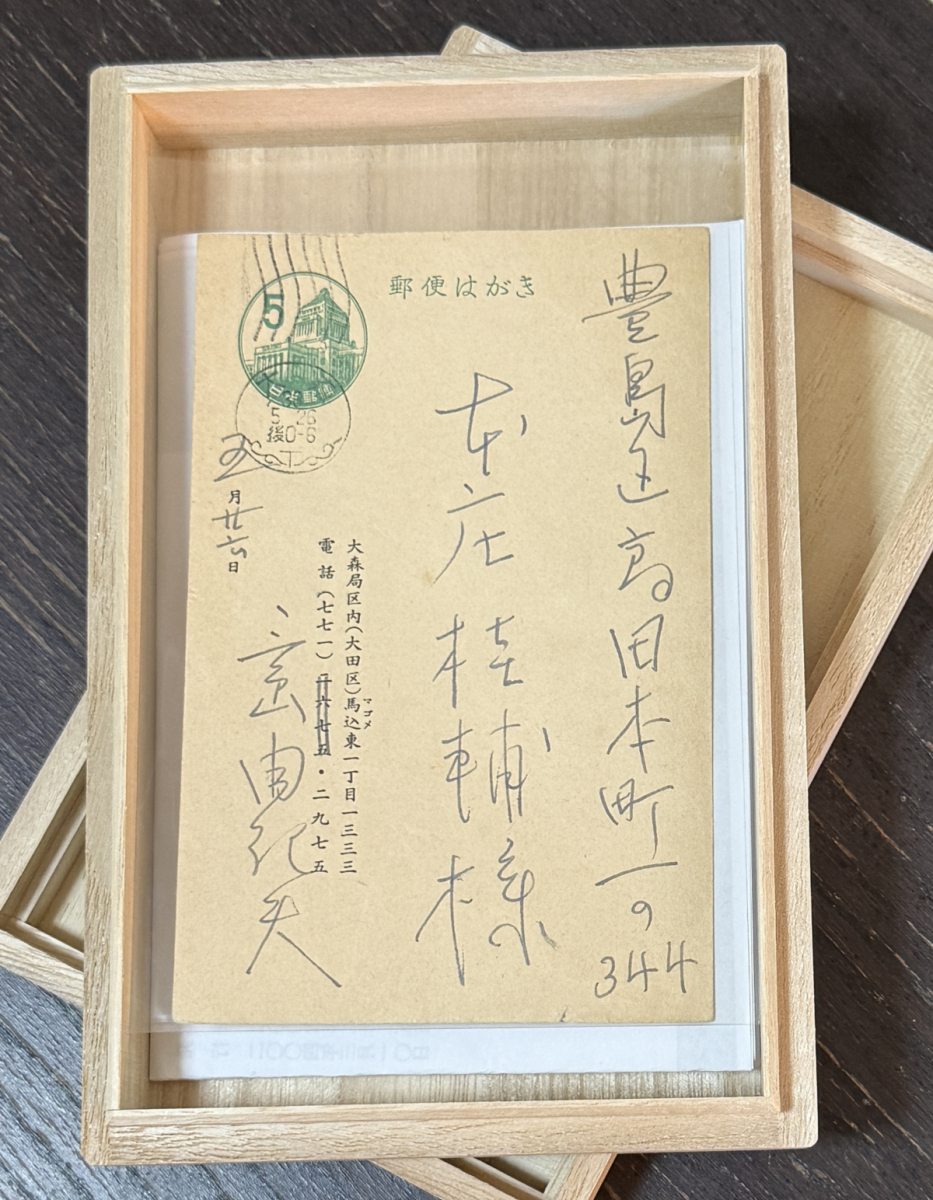 郵便はがき
豊島区高田本町一の344
本庄桂輔様
大森局区内(大田区)馬込東一丁目一三三三
マゴメ
電話(七七一)二六七五・二九七五
三島由紀夫
五月廿六日
5
日本郵便
5 26
後0-6